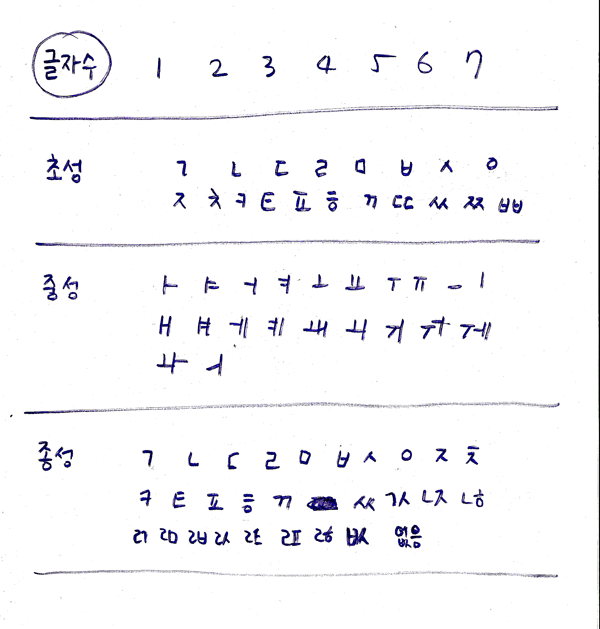 글자수 1 2 3 4 5 6 7
초성 ㄱ ㄴ ㄷ ㄹ ㅁ ㅂ ㅅ ㅇ
ㅈ ㅊ ㅋ ㅌ ㅍ ㅎ ㄲ ㄸ ㅆ ㅉ ㅃ
중성 ㅏ ㅑ ㅓ ㅕ ㅗ ㅛ ㅜ ㅠ ㅡ ㅣ
ㅐ ㅒ ㅔ ㅖ ㅙ ㅚ ㅟ ㅞ
ㅘ ㅢ
종성 ㄱ ㄴ ㄷ ㄹ ㅁ ㅂ ㅅ ㅇ ㅈ ㅊ
ㅋ ㅌ ㅍ ㅎ ㄲ ㅆ ㄳ ㄵ ㄶ
ㄺ ㄻ ㄼ ㄽ ㄾ ㄿ ㅀ ㅄ 없음